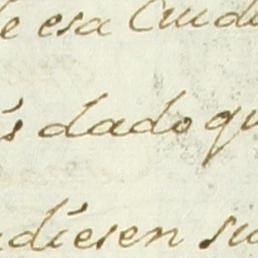 de esa Ciud
is dado qu
diesen su